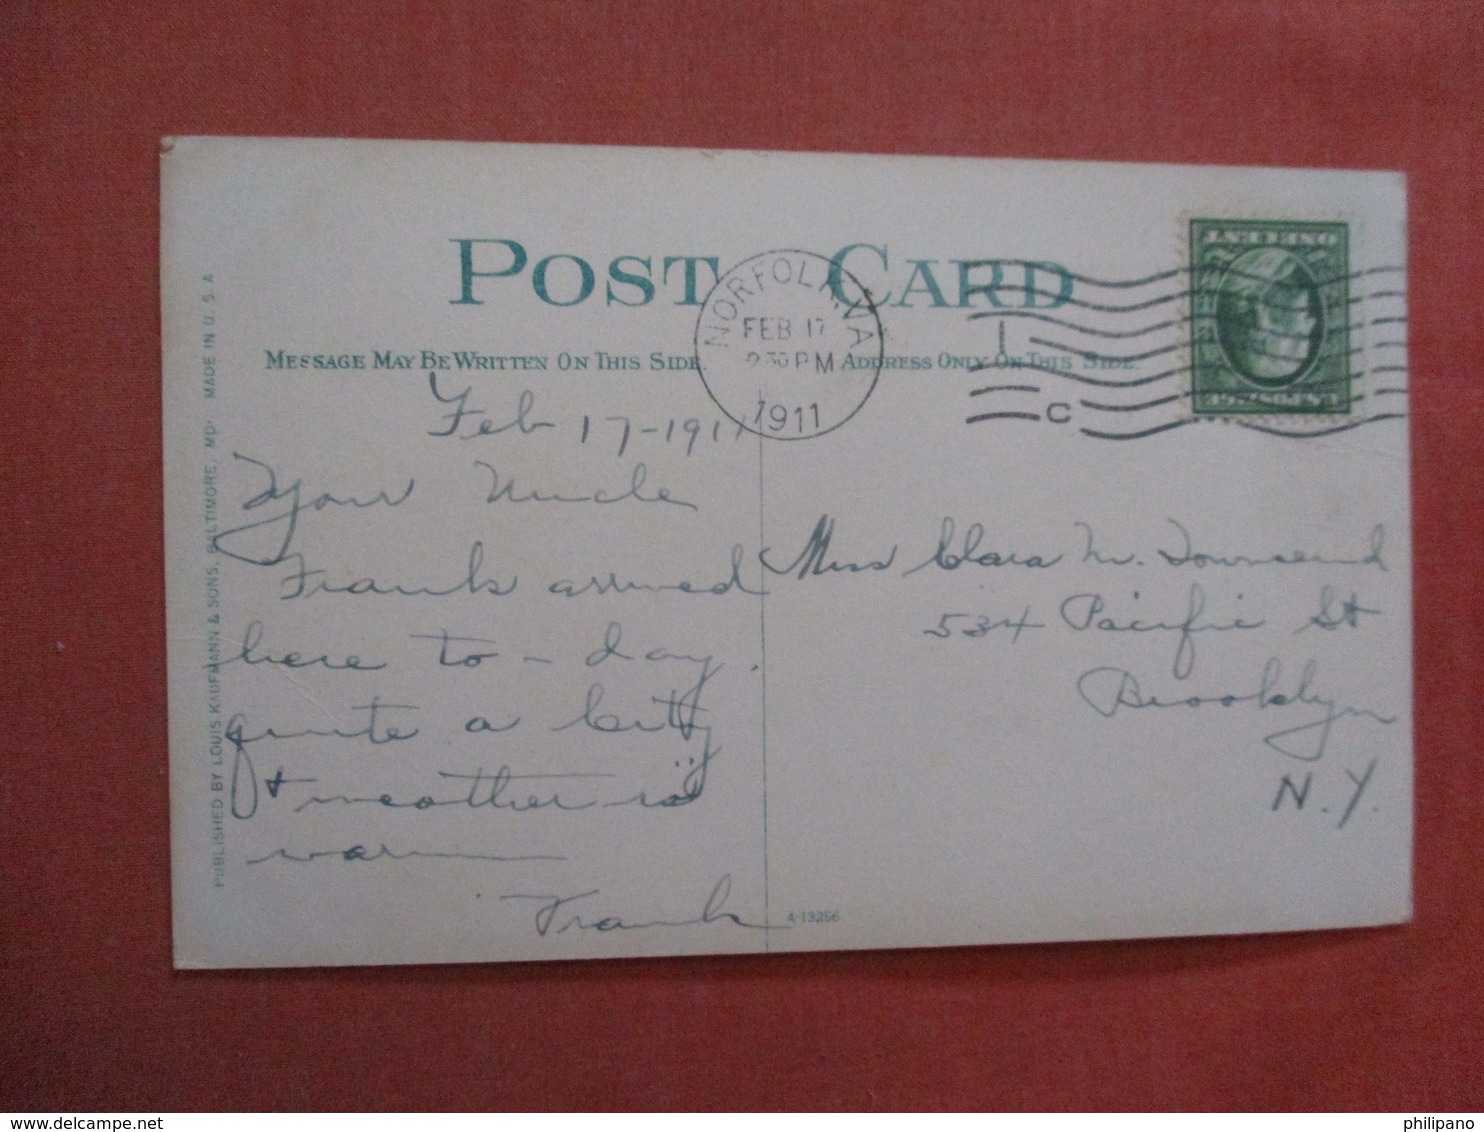 POST CARD
MESSAGE MAY BE WRITTEN ON THIS SIDE.
ADDRESS ONLY ON THIS SIDE
NORFOLK, VA
FEB 17
2 30 PM
1911
1
C
Feb 17-1911
Your Uncle
Frank arrived
here to-day.
quite a city
+ weather is
warm
Frank
Miss Clara M. Townsend
534 Pacific St
Brooklyn
N.Y.
PUBLISHED BY LOUIS KAUFMANN & SONS, BALTIMORE, MD. MADE IN U.S.A
A-13256
U.S. POSTAGE
ONE CENT
philipano